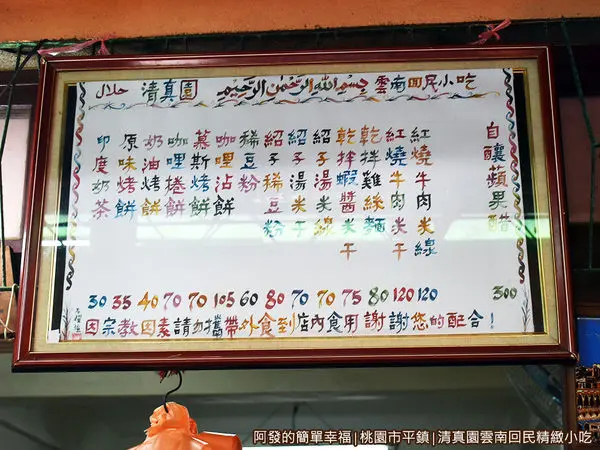 حلال 清真園 بسم الله الرحمن الرحيم 雲南回民小吃
自釀蘋果醋 300
紅燒牛肉米線 120
紅燒牛肉米干 120
乾拌雞絲麵 80
乾拌蝦醬米干 75
紹子湯米線 70
紹子湯米干 70
紹子稀豆粉 80
稀豆粉 60
咖哩沾餅 105
慕斯烤餅 70
咖哩捲餅 70
奶油烤餅 40
原味烤餅 35
印度奶茶 30
因宗教因素請勿攜帶外食到店內食用謝謝您的配合！
阿發的簡單幸福|桃園市平鎮|清真園雲南回民精緻小吃